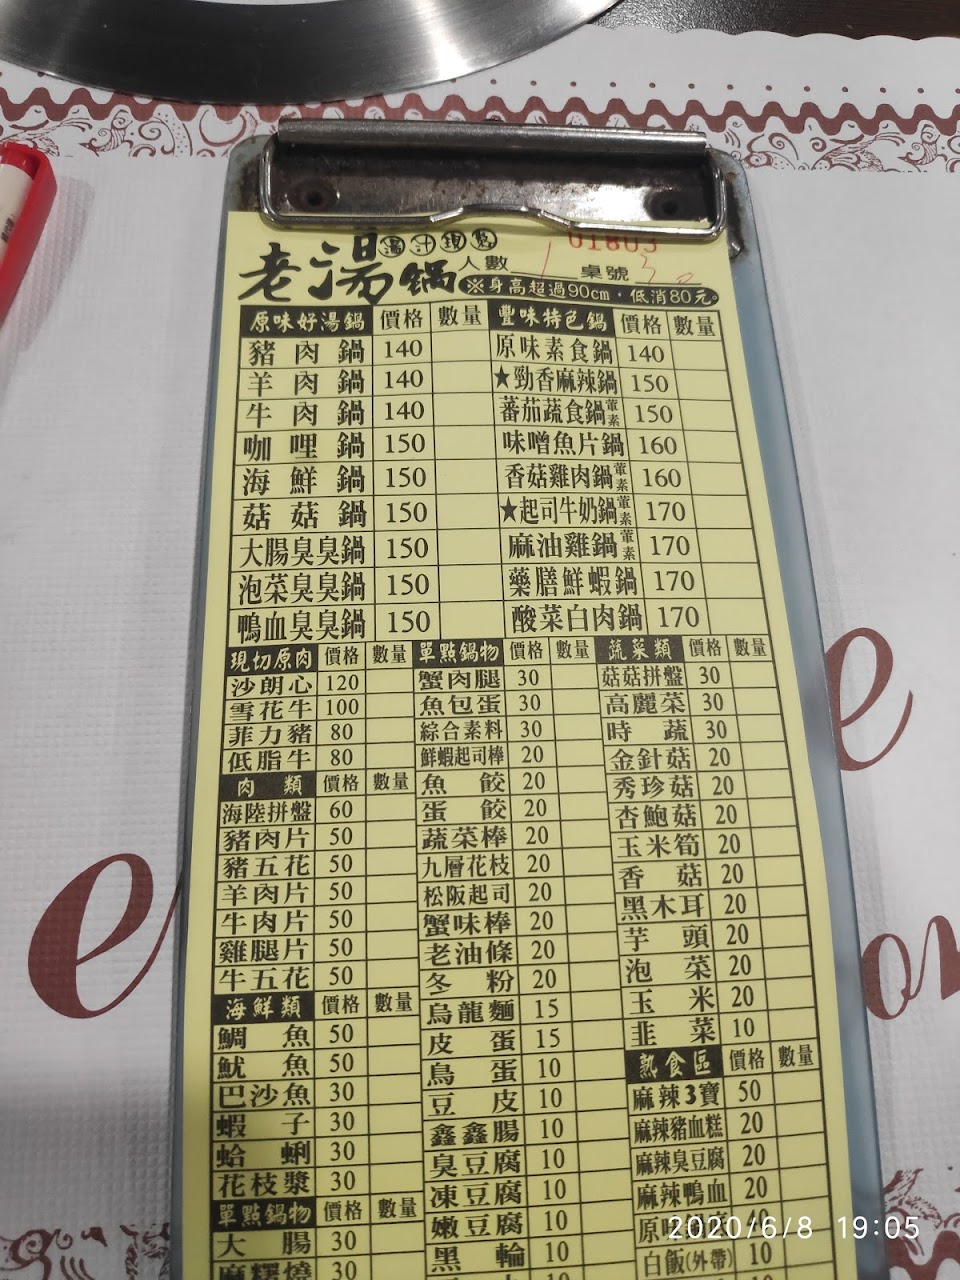 老湯鍋 湯汁現熬
01803
人數 1 桌號
※身高超過90cm，低消80元。
原味好湯鍋 價格 數量 豐味特色鍋 價格 數量
豬肉鍋 140 原味素食鍋 140
羊肉鍋 140 ★勁香麻辣鍋 150
牛肉鍋 140 蕃茄蔬食鍋葷素 150
咖哩鍋 150 味噌魚片鍋 160
海鮮鍋 150 香菇雞肉鍋葷素 160
菇菇鍋 150 ★起司牛奶鍋葷素 170
大腸臭臭鍋 150 麻油雞鍋葷素 170
泡菜臭臭鍋 150 藥膳鮮蝦鍋 170
鴨血臭臭鍋 150 酸菜白肉鍋 170
現切原肉 價格 數量
沙朗心 120
雪花牛 100
菲力豬 80
低脂牛 80
肉類 價格 數量
海陸拼盤 60
豬肉片 50
豬五花 50
羊肉片 50
牛肉片 50
雞腿片 50
牛五花 50
海鮮類 價格 數量
鯛魚 50
魷魚 50
巴沙魚 30
蝦子 30
蛤蜊 30
花枝漿 30
單點鍋物 價格 數量
大腸 30
麻糬燒 30
單點鍋物 價格 數量
蟹肉腿 30
魚包蛋 30
綜合素料 30
鮮蝦起司棒 20
魚餃 20
蛋餃 20
蔬菜棒 20
九層花枝 20
松阪起司 20
蟹味棒 20
老油條 20
冬粉 20
烏龍麵 15
皮蛋 15
鳥蛋 10
豆皮 10
鑫鑫腸 10
臭豆腐 10
凍豆腐 10
嫩豆腐 10
黑輪 10
蔬菜類 價格 數量
菇菇拼盤 30
高麗菜 30
時蔬 30
金針菇 20
秀珍菇 20
杏鮑菇 20
玉米筍 20
香菇 20
黑木耳 20
芋頭 20
泡菜 20
玉米 20
韭菜 10
熟食區 價格 數量
麻辣3寶 50
麻辣豬血糕 20
麻辣臭豆腐 20
麻辣鴨血 20
原味
白飯(外帶) 10
2020/6/8 19:05